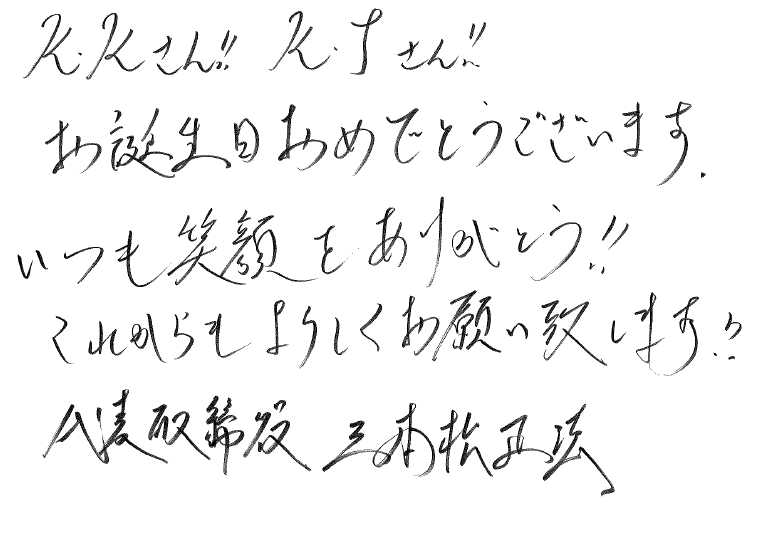 K.Kさん!! K.Tさん!!
お誕生日おめでとうございます.
いつも笑顔をありがとう!!
これからもよろしくお願い致します!!
代表取締役 三本松正法